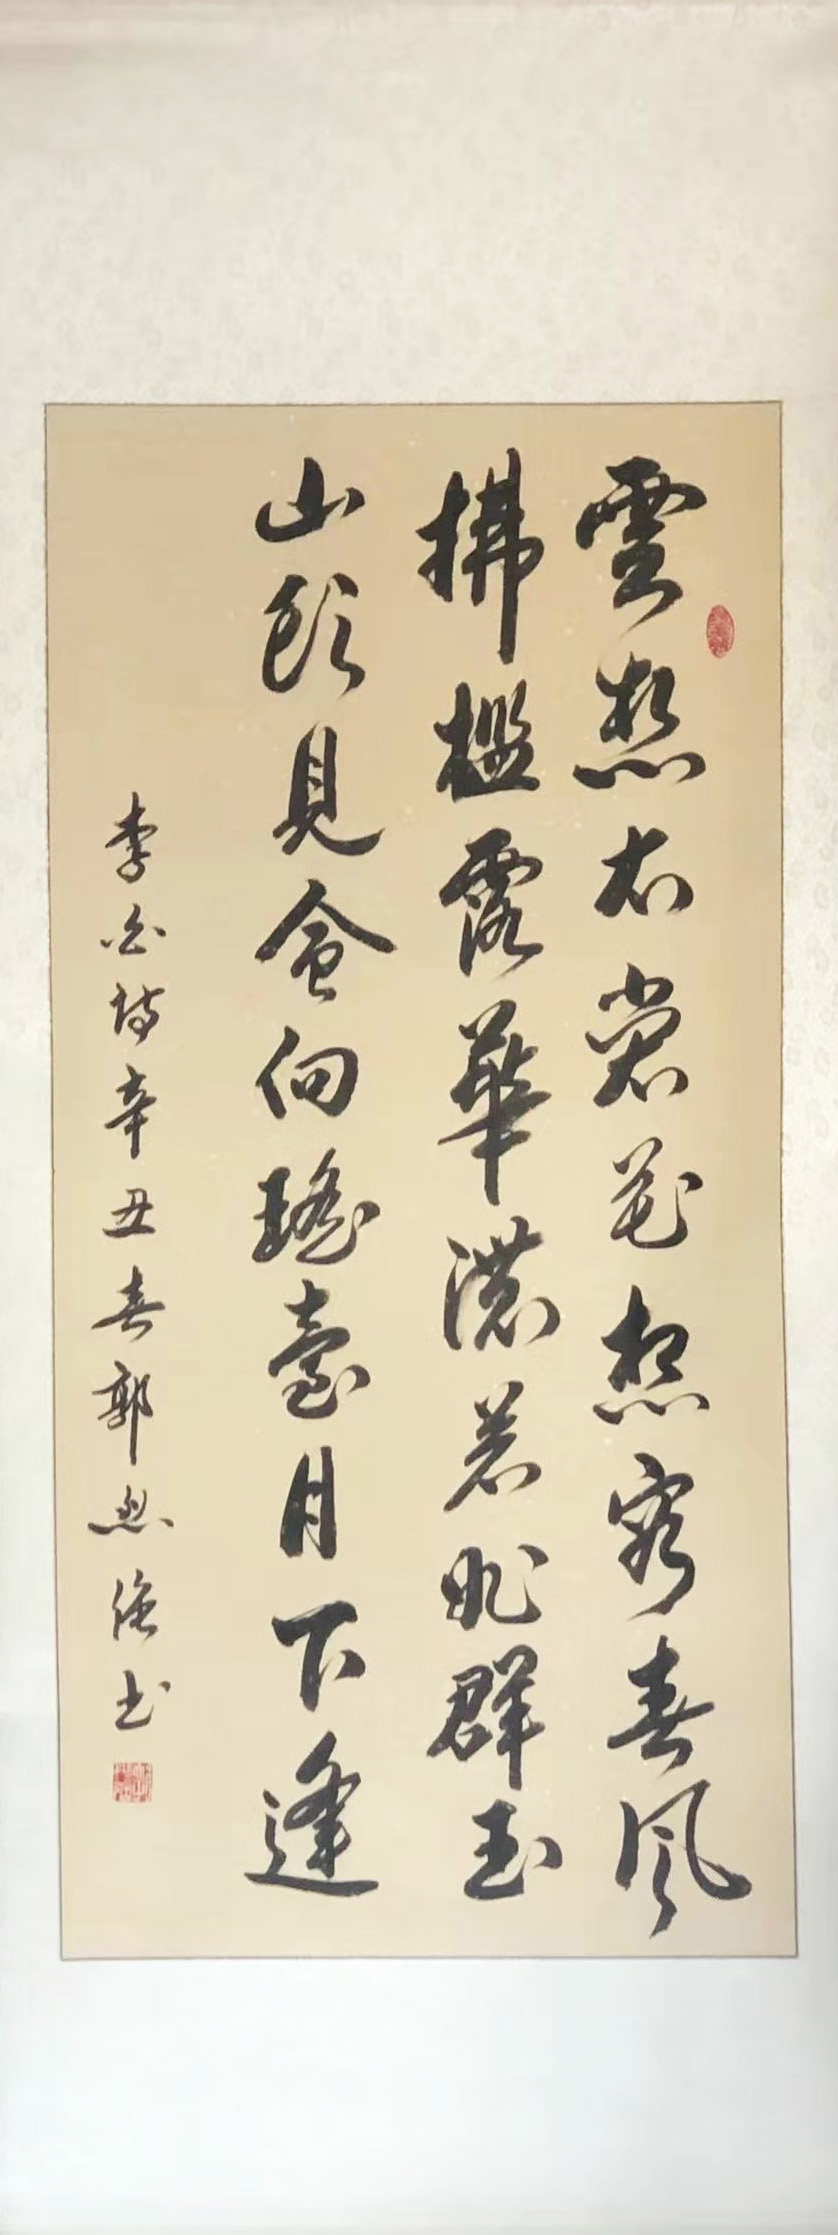 雲想衣裳花想容春風
拂檻露華濃若非群玉
山頭見會向瑤臺月下逢
李白詩辛丑春郭書